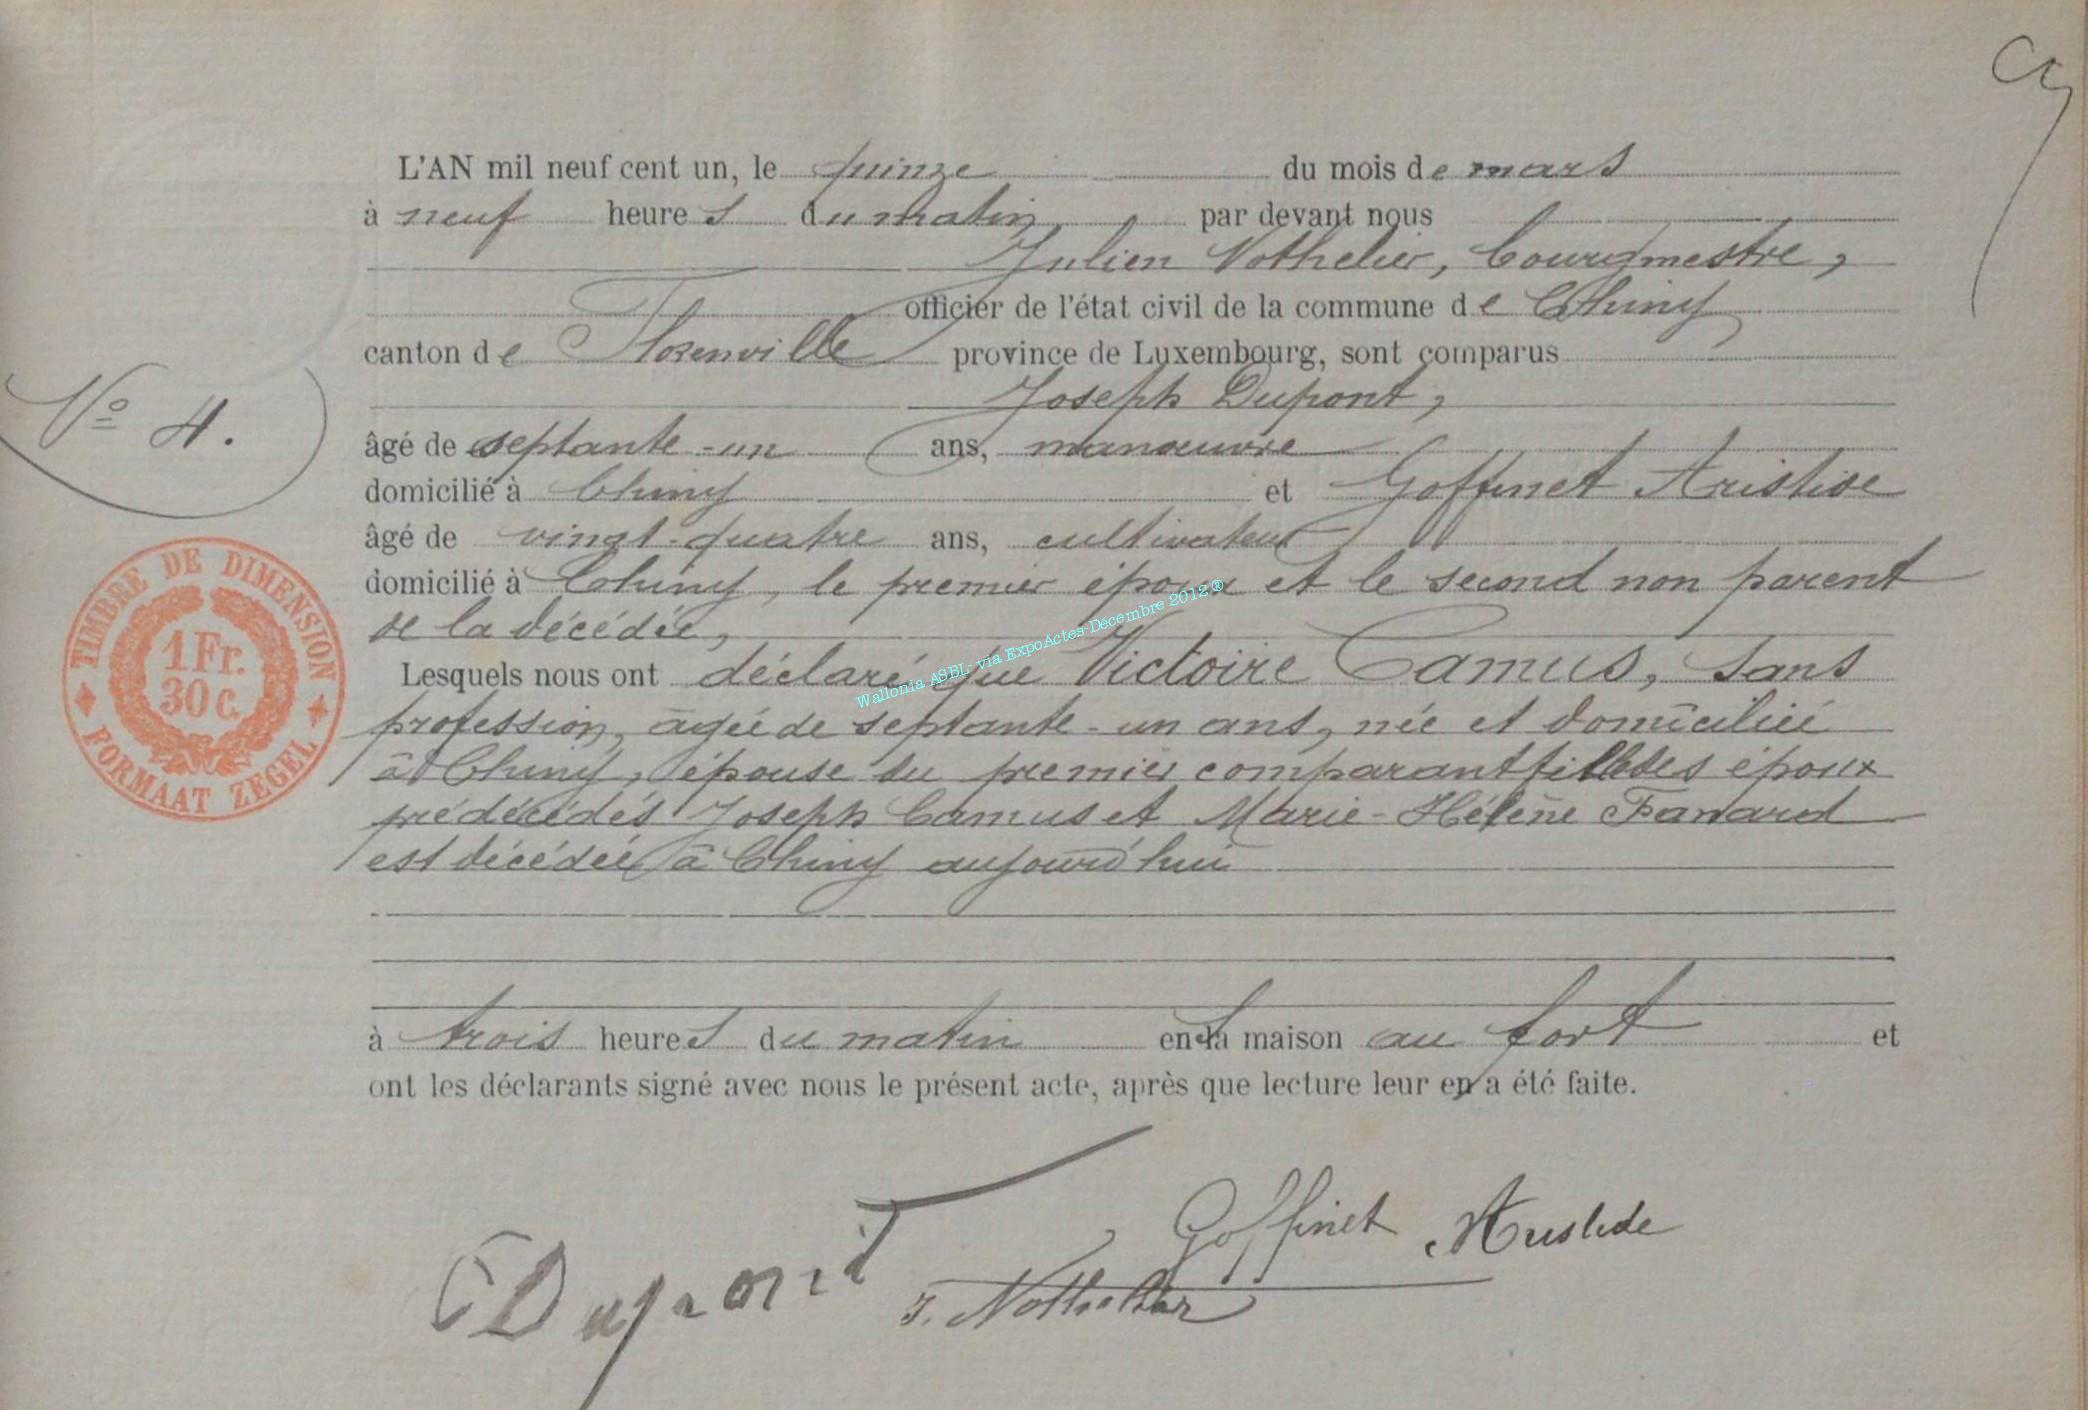 L'AN mil neuf cent un, le quinze du mois de mars
à neuf heures du matin par devant nous
Julien Nothelier, bourgmestre,
officier de l'état civil de la commune de Chiny
canton de Florenville province de Luxembourg, sont comparus
Joseph Dupont,
N° 4.
âgé de septante-un ans, manœuvre
domicilié à Chiny et Goffinet Aristide
âgé de vingt-quatre ans, cultivateur
domicilié à Chiny, le premier époux et le second non parent
de la décédée,
Lesquels nous ont déclaré que Victoire Camus, sans
profession, âgée de septante-un ans, née et domiciliée
à Chiny, épouse du premier comparant fille des époux
prédécédés Joseph Camus et Marie-Hélène Fanard
est décédée à Chiny aujourd'hui
à trois heures du matin en sa maison au fort et
ont les déclarants signé avec nous le présent acte, après que lecture leur en a été faite.
TIMBRE DE DIMENSION
1 Fr.
30 c.
FORMAAT ZEGEL
Wallonia ASBL via ExpoActes-Décembre 2012 ®
Goffinet Aristide
Dupont
J. Nothelier